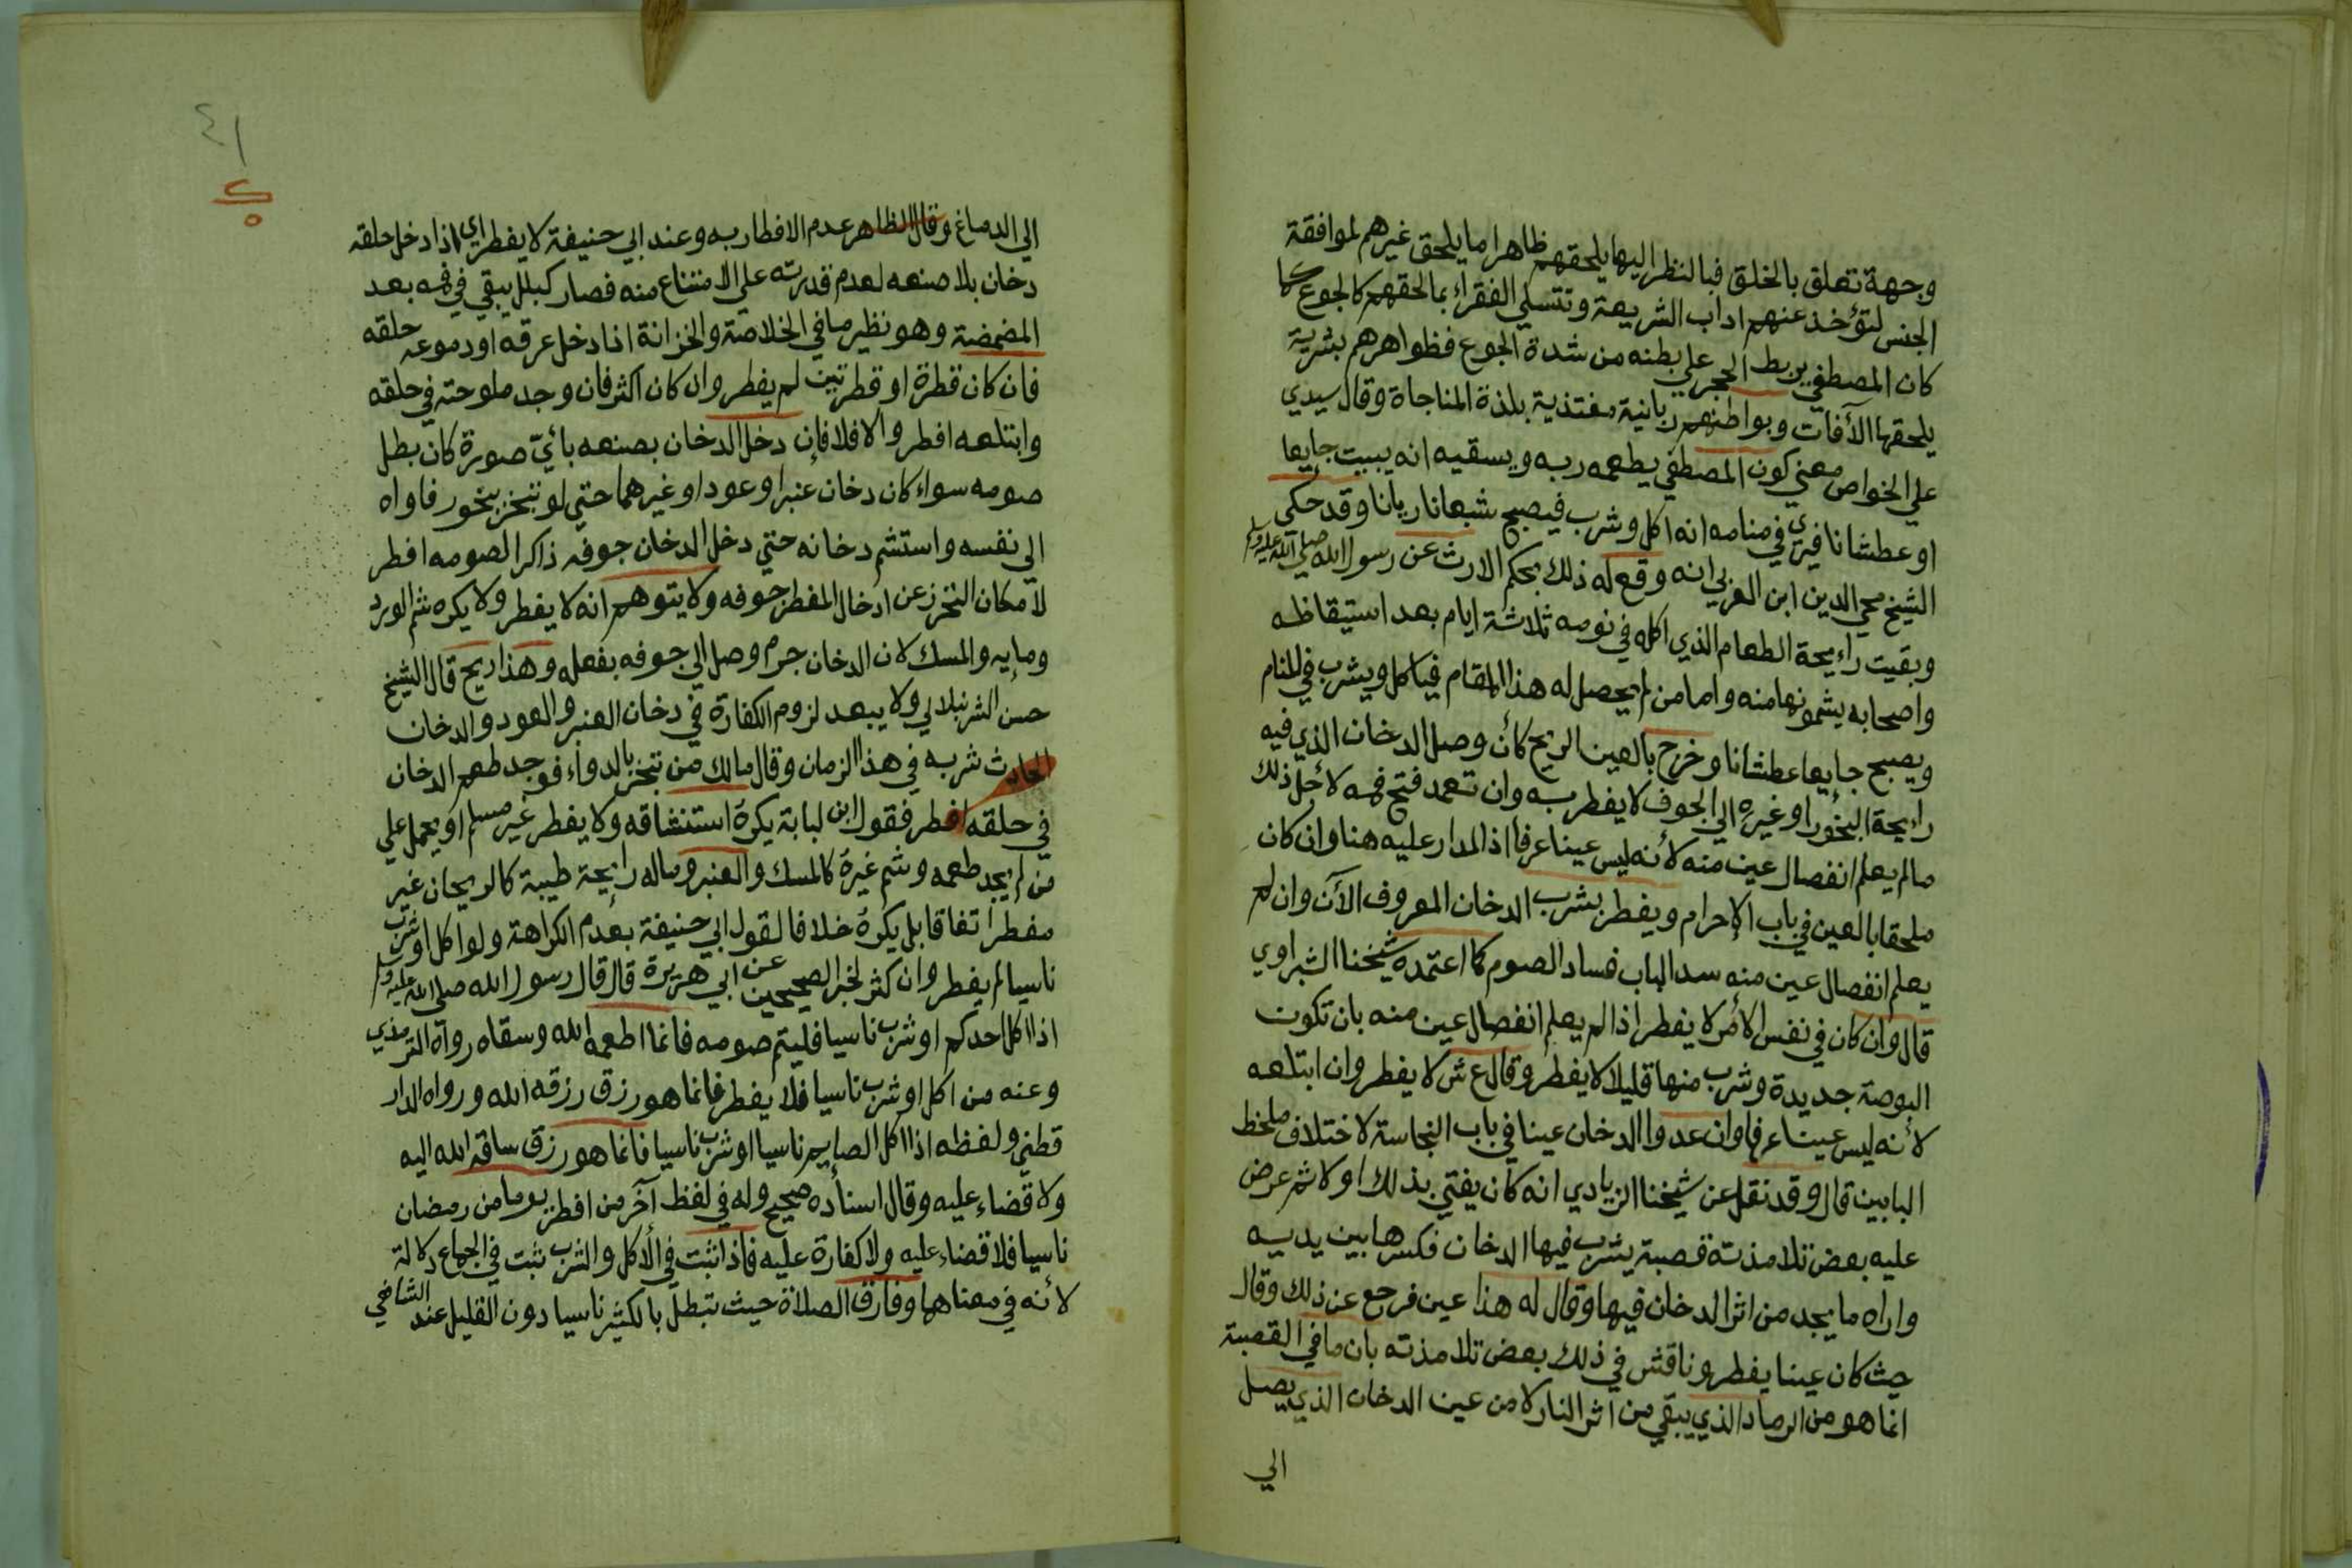 وجهة تعلق بالخلق فبالنظر اليها يلحقهم ظاهرا ما يلحق غيرهم لموافقة
الجنس لتؤخذ عنهم اداب الشريعة وتتسلي الفقراء بما لحقهم كالجوع كما
كان المصطفي يربط الحجر علي بطنه من شدة الجوع فظواهرهم بشرية
يلحقها الآفات وبواطنهم ربانية مغتذية بلذة المناجاة وقال سيدي
علي الخواص معني كون المصطفي يطعمه ربه ويسقيه انه يبيت جايعا
او عطشانا فيري في منامه انه اكل وشرب فيصبح شبعانا ريانا وقد حكي
الشيخ محي الدين ابن العربي انه وقع له ذلك بحكم الارث عن رسول الله صلي الله عليه وسلم
وبقيت رايحة الطعام الذي اكله في نومه ثلاثة ايام بعد استيقاظه
واصحابه يشمونها منه واما من لم يحصل له هذا المقام فياكل ويشرب في المنام
ويصبح جايعا عطشانا وخرج بالعين الريح كأن وصل الدخان الذي فيه
رايحة البخور او غيره الي الجوف لا يفطر به وان تعمد فتح فمه لأجل ذلك
مالم يعلم انفصال عين منه لأنه ليس عينا عرفا اذ المدار عليه هنا وان كان
ملحقا بالعين في باب الإحرام ويفطر بشرب الدخان المعروف الآن وان لم
يعلم انفصال عين منه سد الباب فساد الصوم كما اعتمده شيخنا الشبراوي
قال وان كان في نفس الأمر لا يفطر اذا لم يعلم انفصال عين منه بان تكون
البوصة جديدة وشرب منها قليلا لا يفطر وقال ع ش لا يفطر وان ابتلعه
لأنه ليس عينا عرفا وان عدوا الدخان عينا في باب النجاسة لاختلاف ملحظ
البابين قال وقد نقل عن شيخنا الزيادي انه كان يفتي بذلك اولا ثم عرض
عليه بعض تلامذته قصبة يشرب فيها الدخان فكسرها بين يديه
واراه ما يجد من اثر الدخان فيها وقال له هذا عين فرجع عن ذلك وقال
حيث كان عينا يفطر وناقش في ذلك بعض تلامذته بان ما في القصبة
انما هو من الرماد الذي يبقي من اثر النار لا من عين الدخان الذي يصل
الي
٤١
الي الدماغ وقال الظاهر عدم الافطار به وعند ابي حنيفة لا يفطر اي اذا دخل حلقه
دخان بلا صنعه لعدم قدرته علي الامتناع منه فصار كبلل يبقي في فمه بعد
المضمضة وهو نظير ما في الخلاصة والخزانة اذا دخل عرقه او دموعه حلقه
فان كان قطرة او قطرتين لم يفطر وان كان اكثر فان وجد ملوحته في حلقه
وابتلعه افطر والا فلا فإن دخل الدخان بصنعه بأيّ صورة كان بطل
صومه سواء كان دخان عنبر او عود او غيرهما حتي لو تبخر ببخور فاواه
الي نفسه واستشم دخانه حتي دخل الدخان جوفه ذاكرا لصومه افطر
لأمكان التحرز عن ادخال المفطر جوفه ولا يتوهم انه لا يفطر ولا يكره شم الورد
ومايه والمسك لان الدخان جرم وصل الي جوفه بفعله وهذا ريح قال الشيخ
حسن الشرنبلالي ولا يبعد لزوم الكفارة في دخان العنبر والعود والدخان
الحادث شربه في هذا الزمان وقال مالك من تبخر بالدواء فوجد طعم الدخان
في حلقه افطر فقول ابن لبابة يكره استنشاقه ولا يفطر غير مسلم او يحمل علي
من لم يجد طعمه وشم غيره كالمسك والعنبر وماله رايحة طيبة كالريحان غير
مفطر اتفاقا بل يكره خلافا لقول ابي حنيفة بعدم الكراهة ولو اكل او شرب
ناسيا لم يفطر وان كثر لخبر الصحيحين عن ابي هريرة قال قال رسول الله صلي الله عليه وسلم
اذا اكل احدكم او شرب ناسيا فليتم صومه فانما اطعمه الله وسقاه رواه الترمذي
وعنه من اكل او شرب ناسيا فلا يفطر فانما هو رزق رزقه الله ورواه الدار
قطني ولفظه اذا اكل الصايم ناسيا او شرب ناسيا فانما هو رزق ساقه الله اليه
ولا قضاء عليه وقال اسناده صحيح وله في لفظ آخر من افطر يوما من رمضان
ناسيا فلا قضاء عليه ولا كفارة عليه فاذا ثبت في الأكل والشرب ثبت في الجماع دلالة
لأنه في معناها وفارق الصلاة حيث تبطل بالكثير ناسيا دون القليل عند الشافعي